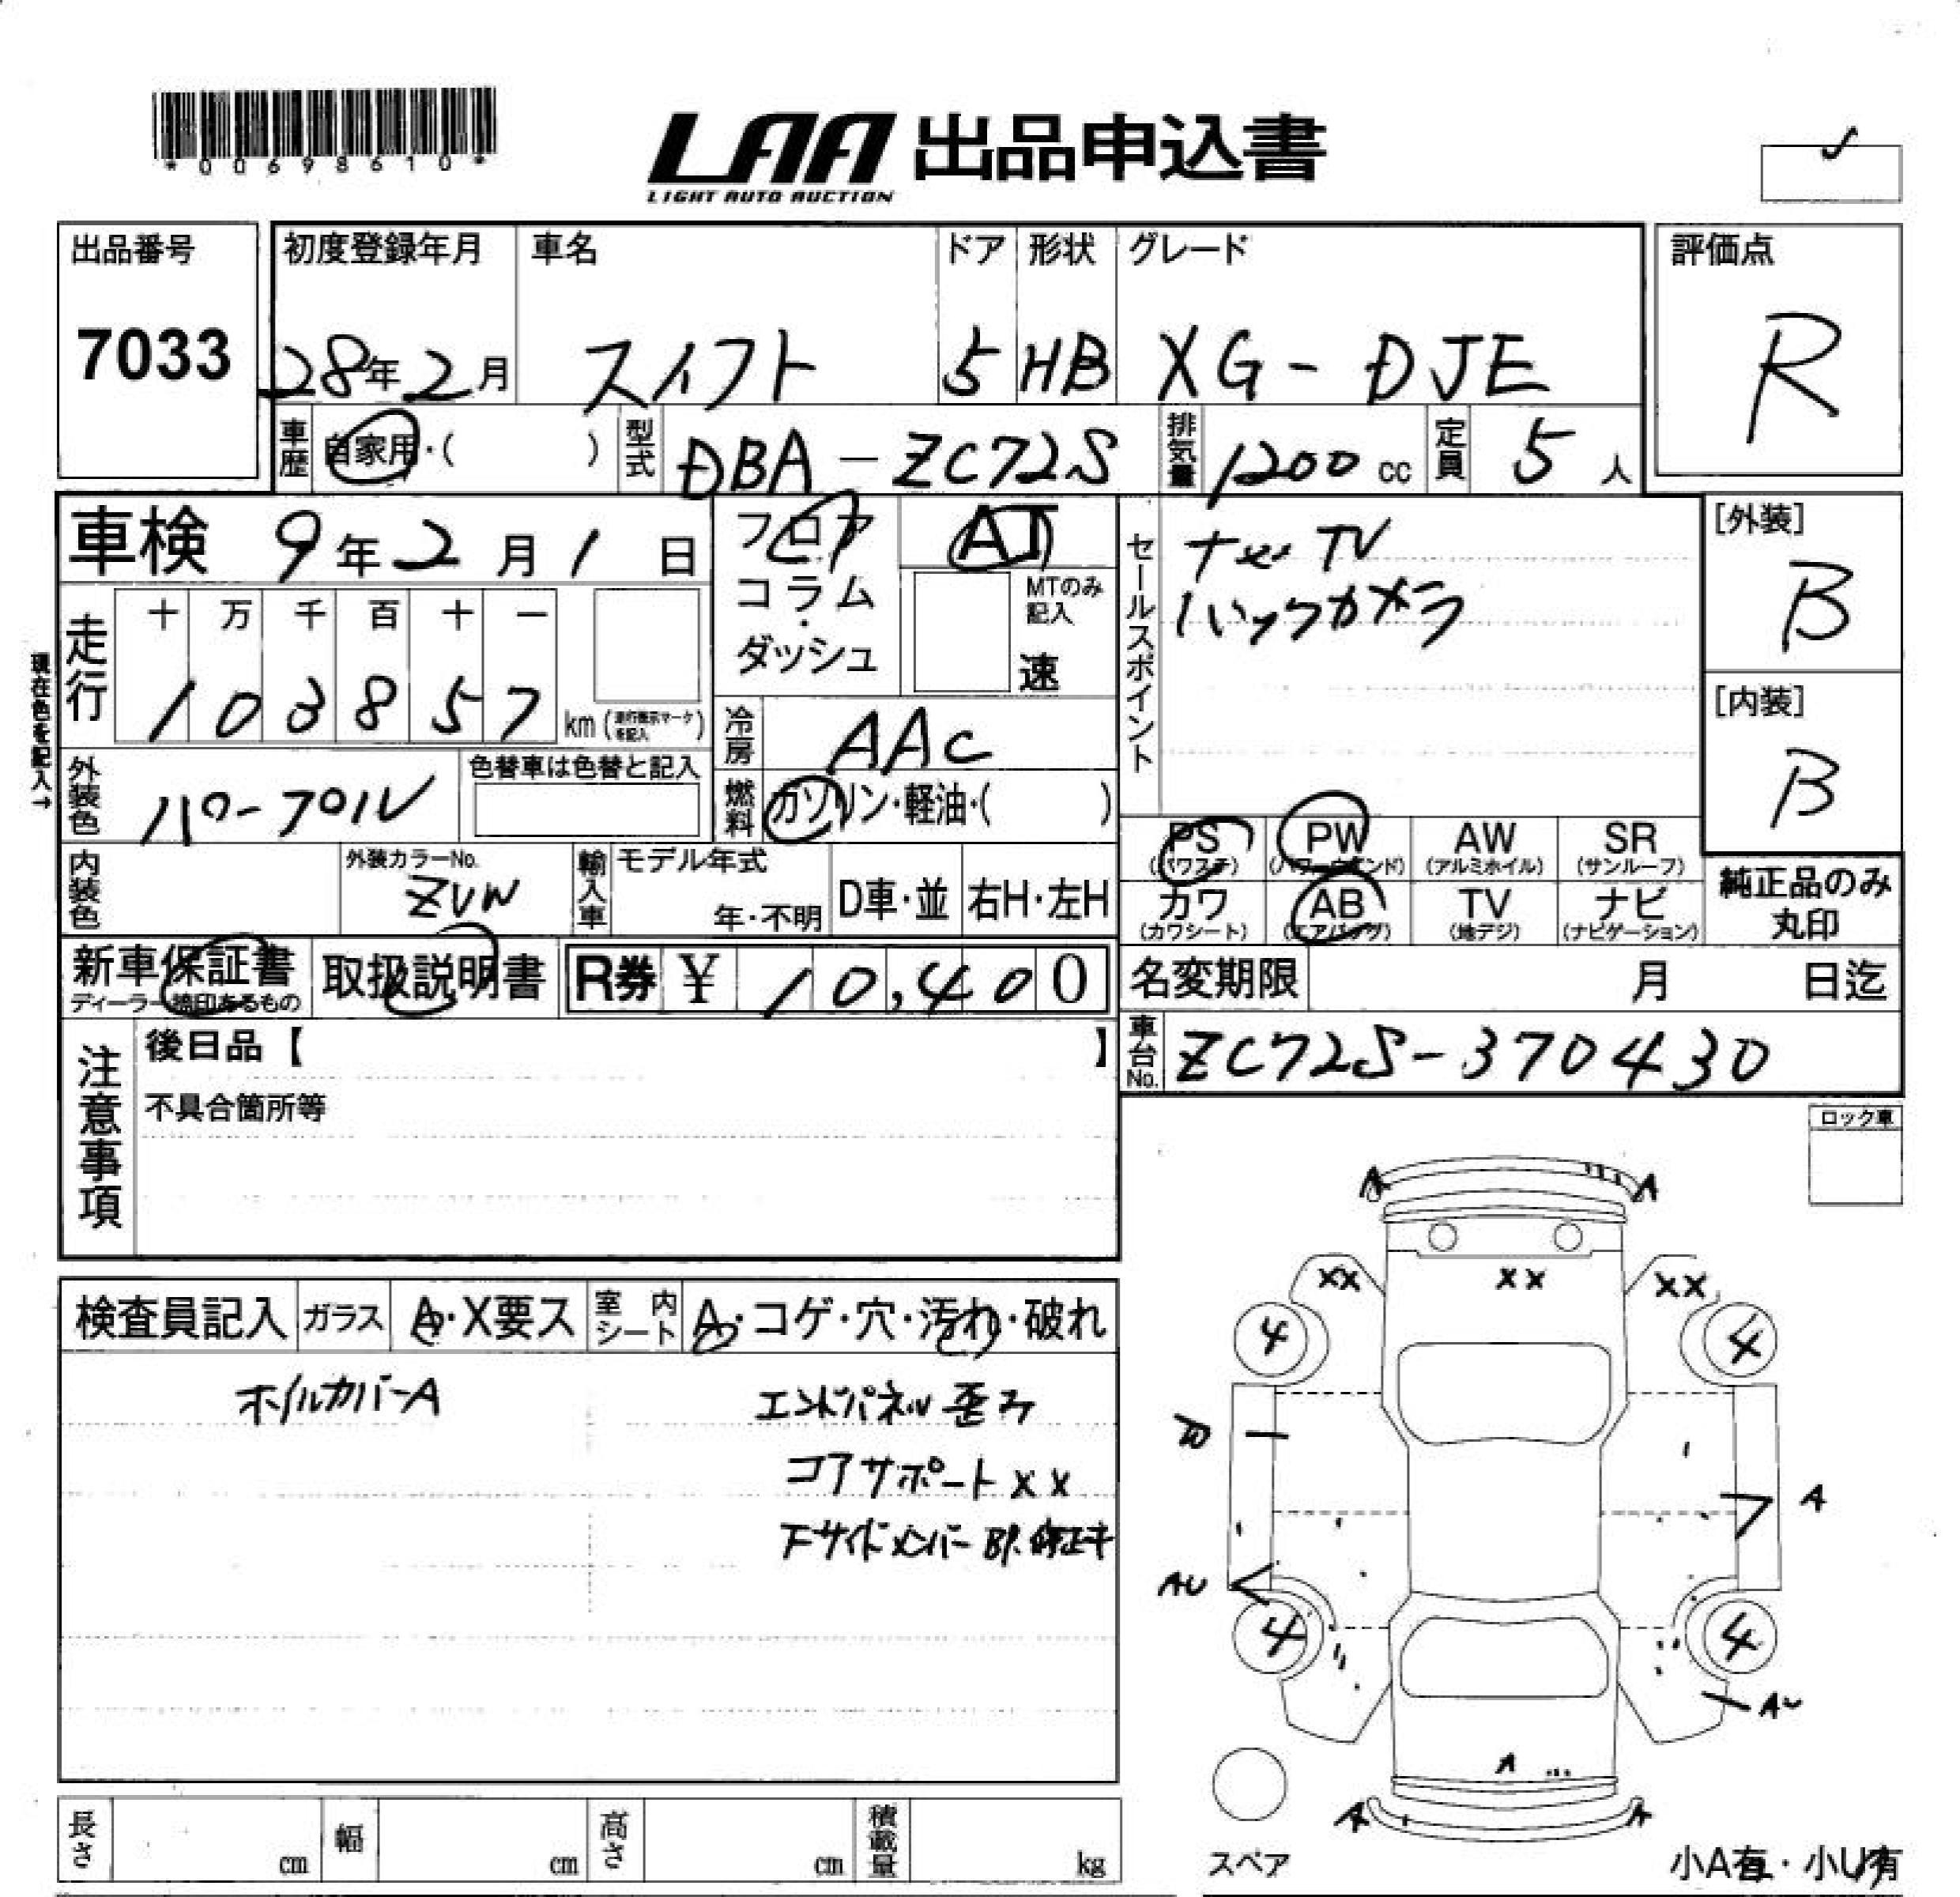 *00698610*
LAA 出品申込書
LIGHT AUTO AUCTION
出品番号
7033
初度登録年月
28年2月
車名
スイフト
ドア
5
形状
HB
グレード
XG-DJE
評価点
R
車歴 自家用・( )
型式 DBA-ZC72S
排気量 1200 cc
定員 5人
車検 9年2月1日
フロア
コラム
・
ダッシュ
AT
MTのみ記入
速
セールスポイント
ナビ TV
バックカメラ
[外装]
B
[内装]
B
現在色を記入→
走行
十 万 千 百 十 一
1 0 3 8 5 7 km
(走行表示マークを記入)
冷房 AAC
外装色 パープル
色替車は色替と記入
燃料 ガソリン・軽油・( )
PS (パワステ)
PW (パワーウインド)
AW (アルミホイル)
SR (サンルーフ)
カワ (カワシート)
AB (エアバッグ)
TV (地デジ)
ナビ (ナビゲーション)
純正品のみ
丸印
内装色
外装カラーNo.
ZVW
輸入車
モデル年式
年・不明
D車・並
右H・左H
新車保証書
ディーラー捺印あるもの
取扱説明書
R券 ¥ 10,400
名変期限 月 日迄
車台No. ZC72S-370430
注意事項
後日品【 】
不具合箇所等
ロック車
検査員記入
ガラス A・X要ス
室内シート A・コゲ・穴・汚れ・破れ
ホイルカバーA
エンドパネル歪み
コアサポートXX
FサイドメンバーBP.修正キ
A A
XX XX XX
4 4
A
AU
4 4
AU
A
A A
スペア
小A有・小U有
長さ cm
幅 cm
高さ cm
積載量 kg